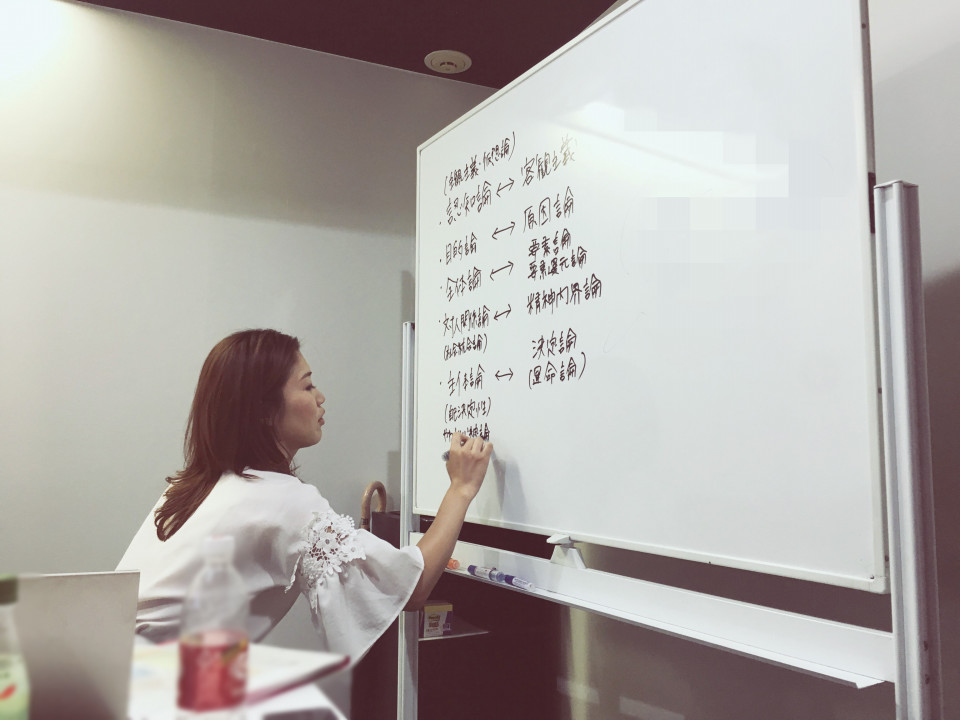 (主観主義・仮想論)
・認知論 ↔ 客観主義
・目的論 ↔ 原因論
・全体論 ↔ 要素論
要素還元論
・対人関係論 ↔ 精神内界論
(社会統合論)
・主体論 ↔ 決定論
(自己決定性) (運命論)